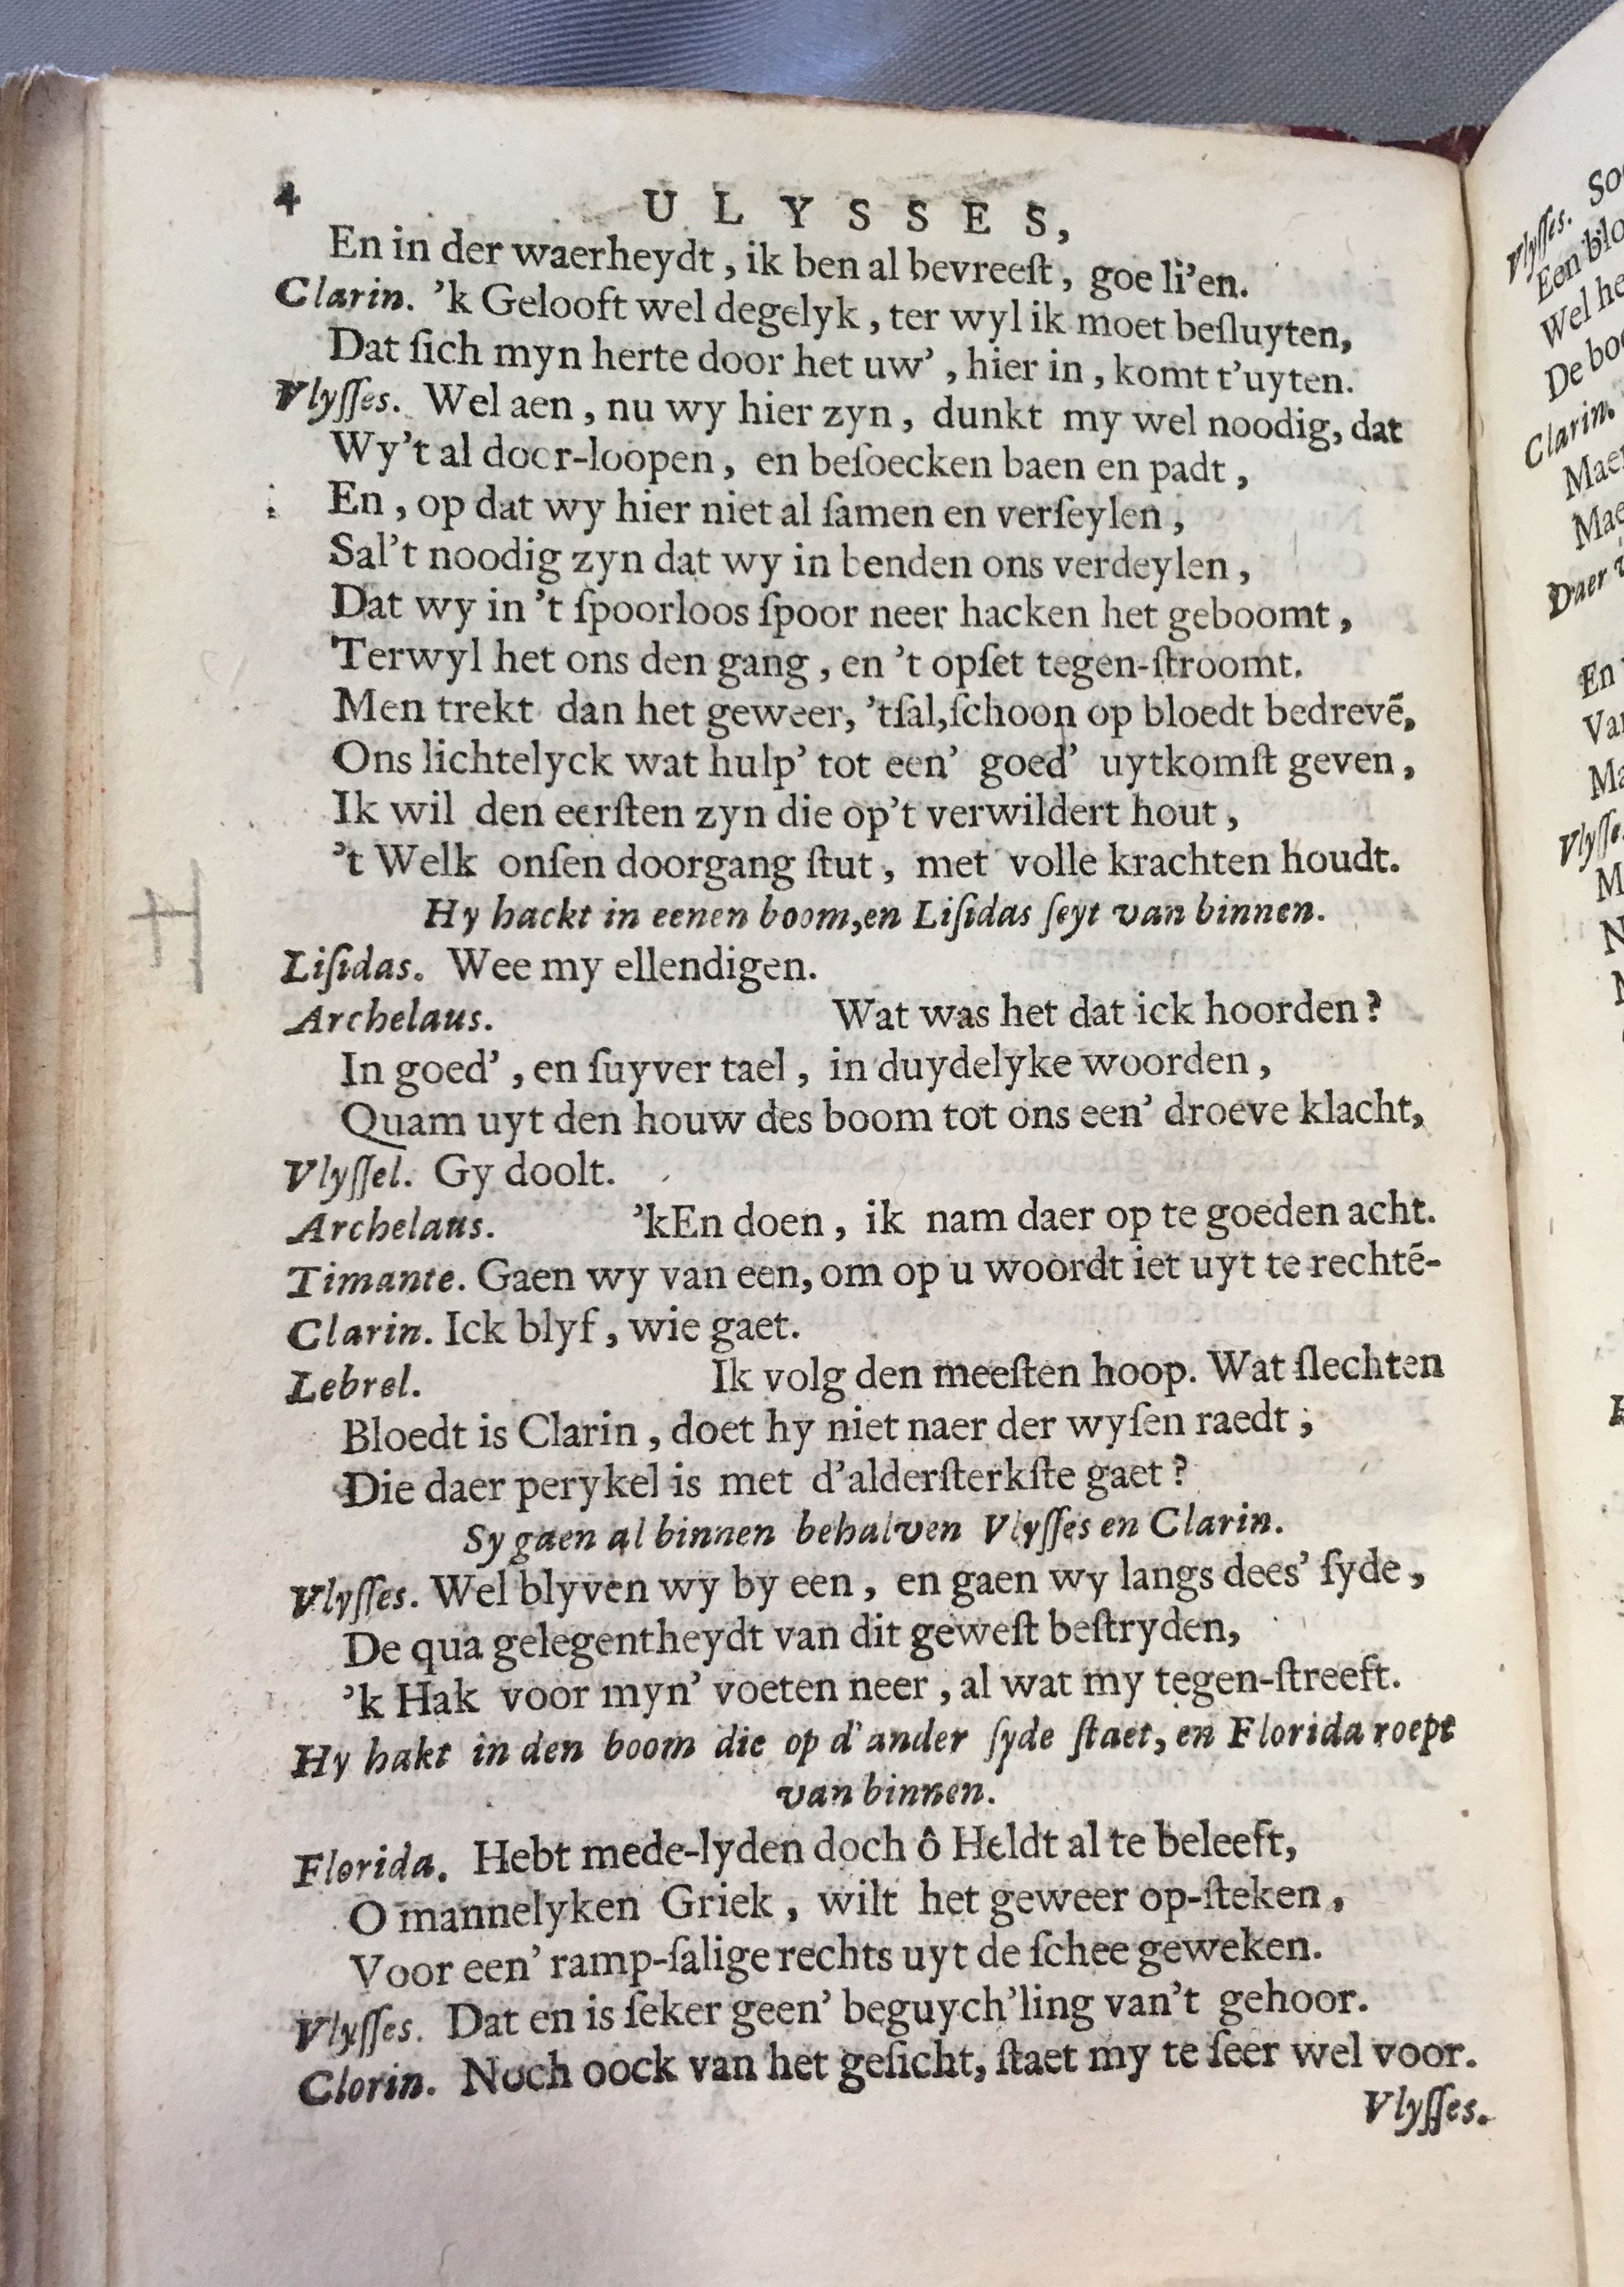 4 ULYSSES,
En in der waerheydt, ik ben al bevreeſt, goe li'en.
Clarin. 'k Gelooft wel degelyk, ter wyl ik moet beſluyten,
Dat ſich myn herte door het uw', hier in, komt t'uyten.
Vlyſſes. Wel aen, nu wy hier zyn, dunkt my wel noodig, dat
Wy't al door-loopen, en beſoecken baen en padt,
En, op dat wy hier niet al ſamen en verſeylen,
Sal't noodig zyn dat wy in benden ons verdeylen,
Dat wy in 't ſpoorloos ſpoor neer hacken het geboomt,
Terwyl het ons den gang, en 't opſet tegen-ſtroomt.
Men trekt dan het geweer, 'tſal,ſchoon op bloedt bedrevē,
Ons lichtelyck wat hulp' tot een' goed' uytkomſt geven,
Ik wil den eerſten zyn die op't verwildert hout,
't Welk onſen doorgang ſtut, met volle krachten houdt.
Hy hackt in eenen boom,en Liſidas ſeyt van binnen.
Liſidas. Wee my ellendigen.
Archelaus. Wat was het dat ick hoorden?
In goed', en ſuyver tael, in duydelyke woorden,
Quam uyt den houw des boom tot ons een' droeve klacht,
Vlyſſel. Gy doolt.
Archelaus. 'kEn doen, ik nam daer op te goeden acht.
Timante. Gaen wy van een, om op u woordt iet uyt te rechtē-
Clarin. Ick blyf, wie gaet.
Lebrel. Ik volg den meeſten hoop. Wat ſlechten
Bloedt is Clarin, doet hy niet naer der wyſen raedt;
Die daer perykel is met d'alderſterkſte gaet?
Sy gaen al binnen behalven Vlyſſes en Clarin.
Vlyſſes. Wel blyven wy by een, en gaen wy langs dees' ſyde,
De qua gelegentheydt van dit geweſt beſtryden,
'k Hak voor myn' voeten neer, al wat my tegen-ſtreeft.
Hy hakt in den boom die op d'ander ſyde ſtaet, en Florida roept
van binnen.
Florida. Hebt mede-lyden doch ô Heldt al te beleeft,
O mannelyken Griek, wilt het geweer op-ſteken,
Voor een' ramp-ſalige rechts uyt de ſchee geweken.
Vlyſſes. Dat en is ſeker geen' beguych'ling van't gehoor.
Clorin. Noch oock van het geſicht, ſtaet my te ſeer wel voor.
Vlyſſes.
Vlyſſes.
Een
Wel
De
Clarin.
Daer
En